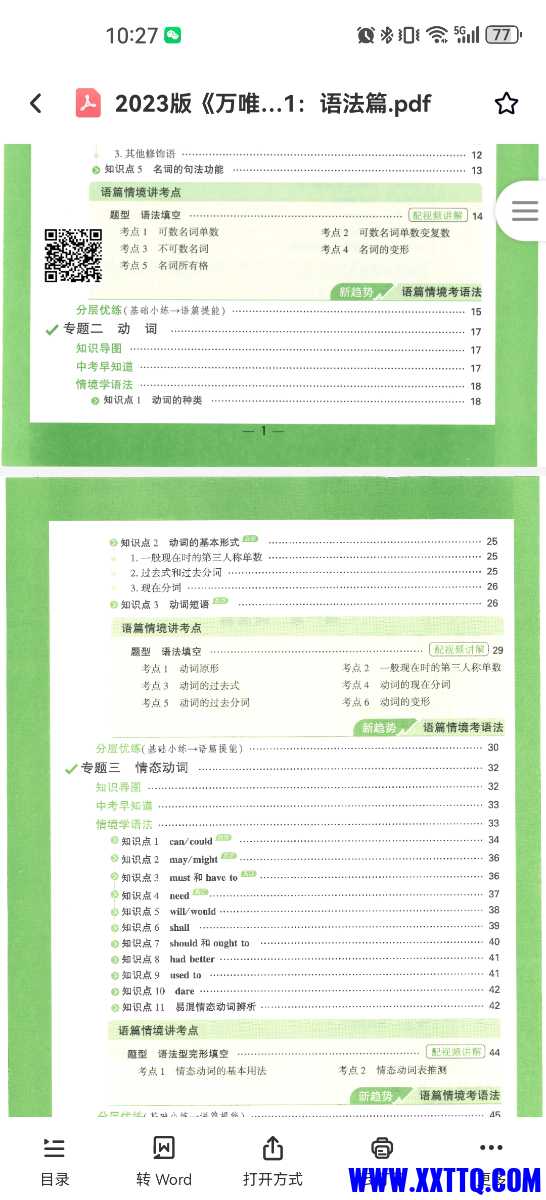 10:27 5G 77
2023版《万唯...1：语法篇.pdf
3. 其他修饰语 12
知识点 5 名词的句法功能 13
语篇情境讲考点
题型 语法填空 配视频讲解 14
考点 1 可数名词单数 考点 2 可数名词单数变复数
考点 3 不可数名词 考点 4 名词的变形
考点 5 名词所有格
新趋势 语篇情境考语法
分层优练(基础小练→语篇提能) 15
专题二 动 词 17
知识导图 17
中考早知道 17
情境学语法 18
知识点 1 动词的种类 18
— 1 —
知识点 2 动词的基本形式 25
1. 一般现在时的第三人称单数 25
2. 过去式和过去分词 25
3. 现在分词 26
知识点 3 动词短语 26
语篇情境讲考点
题型 语法填空 配视频讲解 29
考点 1 动词原形 考点 2 一般现在时的第三人称单数
考点 3 动词的过去式 考点 4 动词的现在分词
考点 5 动词的过去分词 考点 6 动词的变形
新趋势 语篇情境考语法
分层优练(基础小练→语篇提能) 30
专题三 情态动词 32
知识导图 32
中考早知道 33
情境学语法 33
知识点 1 can/could 34
知识点 2 may/might 36
知识点 3 must 和 have to 36
知识点 4 need 37
知识点 5 will/would 38
知识点 6 shall 39
知识点 7 should 和 ought to 40
知识点 8 had better 41
知识点 9 used to 41
知识点 10 dare 42
知识点 11 易混情态动词辨析 42
语篇情境讲考点
题型 语法型完形填空 配视频讲解 44
考点 1 情态动词的基本用法 考点 2 情态动词表推测
新趋势 语篇情境考语法
分层优练(基础小练→语篇提能) 45
目录 转 Word 打开方式 更多
WWW.XXTTQ.COM